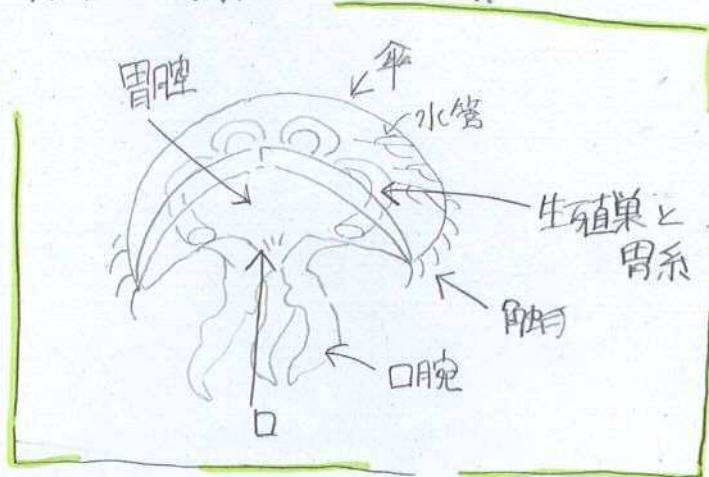 傘
胃腔
水管
生殖巣と
胃糸
触手
口腕
口